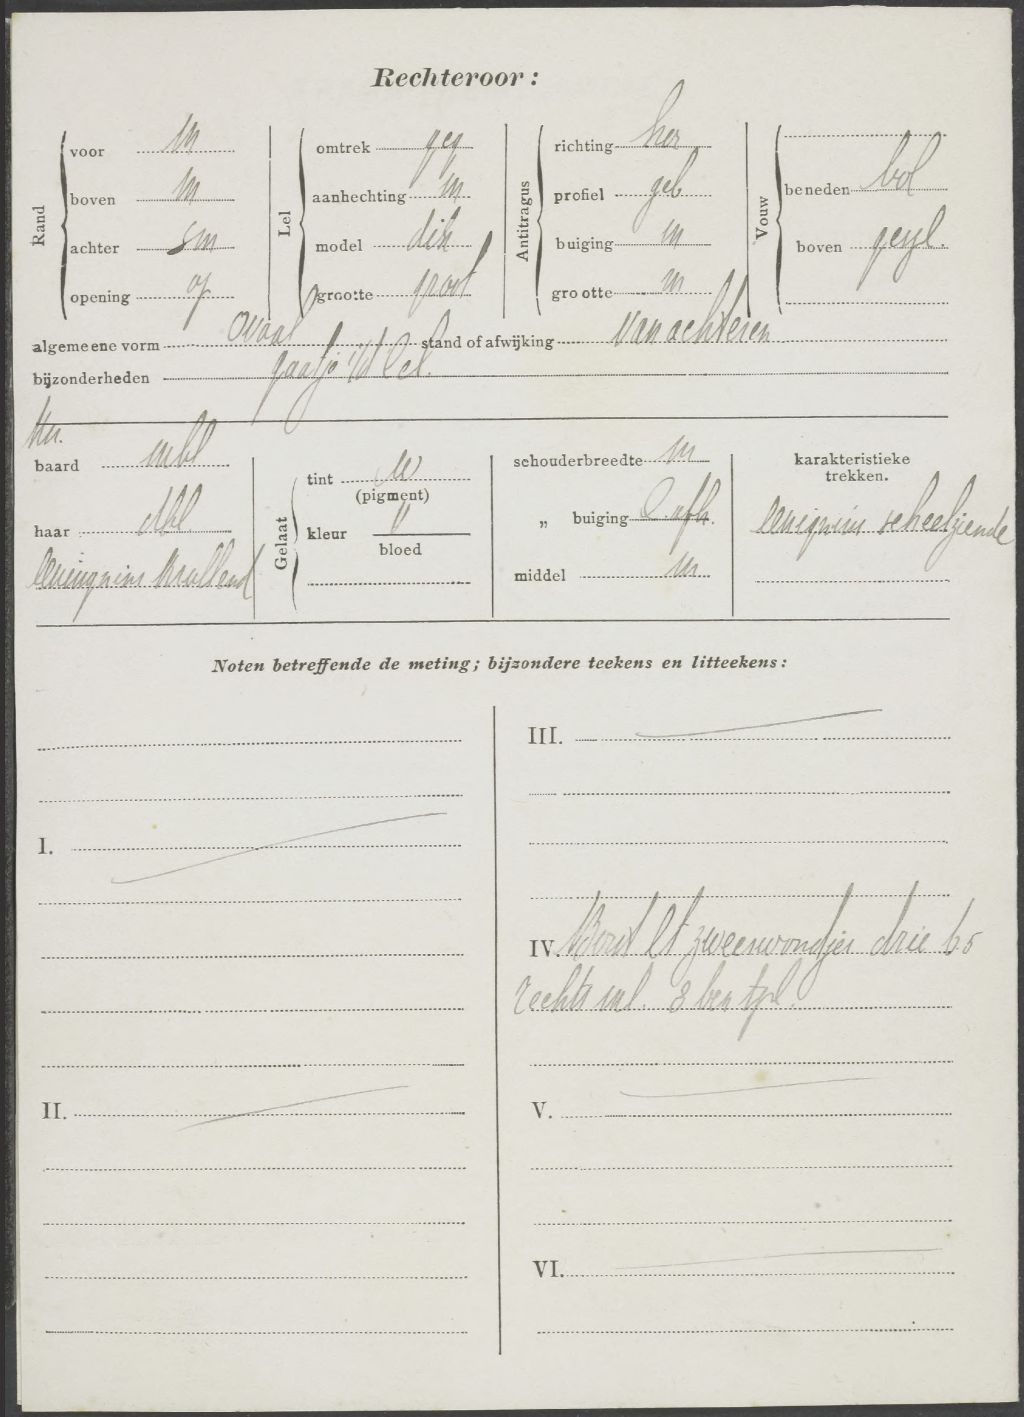 Rechteroor:
Rand
voor m
boven m
achter sm
opening op
Lel
omtrek geg
aanhechting m
model dik
grootte groot
Antitragus
richting hor
profiel geb
buiging m
grootte m
Vouw
beneden bol
boven
algemeene vorm ovaal stand of afwijking van achteren
bijzonderheden gaatje i/d lel.
kn.
baard mbl
haar dbl
eenigzins krullend
Gelaat
tint w
(pigment)
kleur
bloed
schouderbreedte m
„ buiging l. afh.
middel m
karakteristieke
trekken.
eenigzins scheelziende
Noten betreffende de meting; bijzondere teekens en litteekens:
I.
II.
III.
IV. lt zweerwondjes drie
rechts
V.
VI.